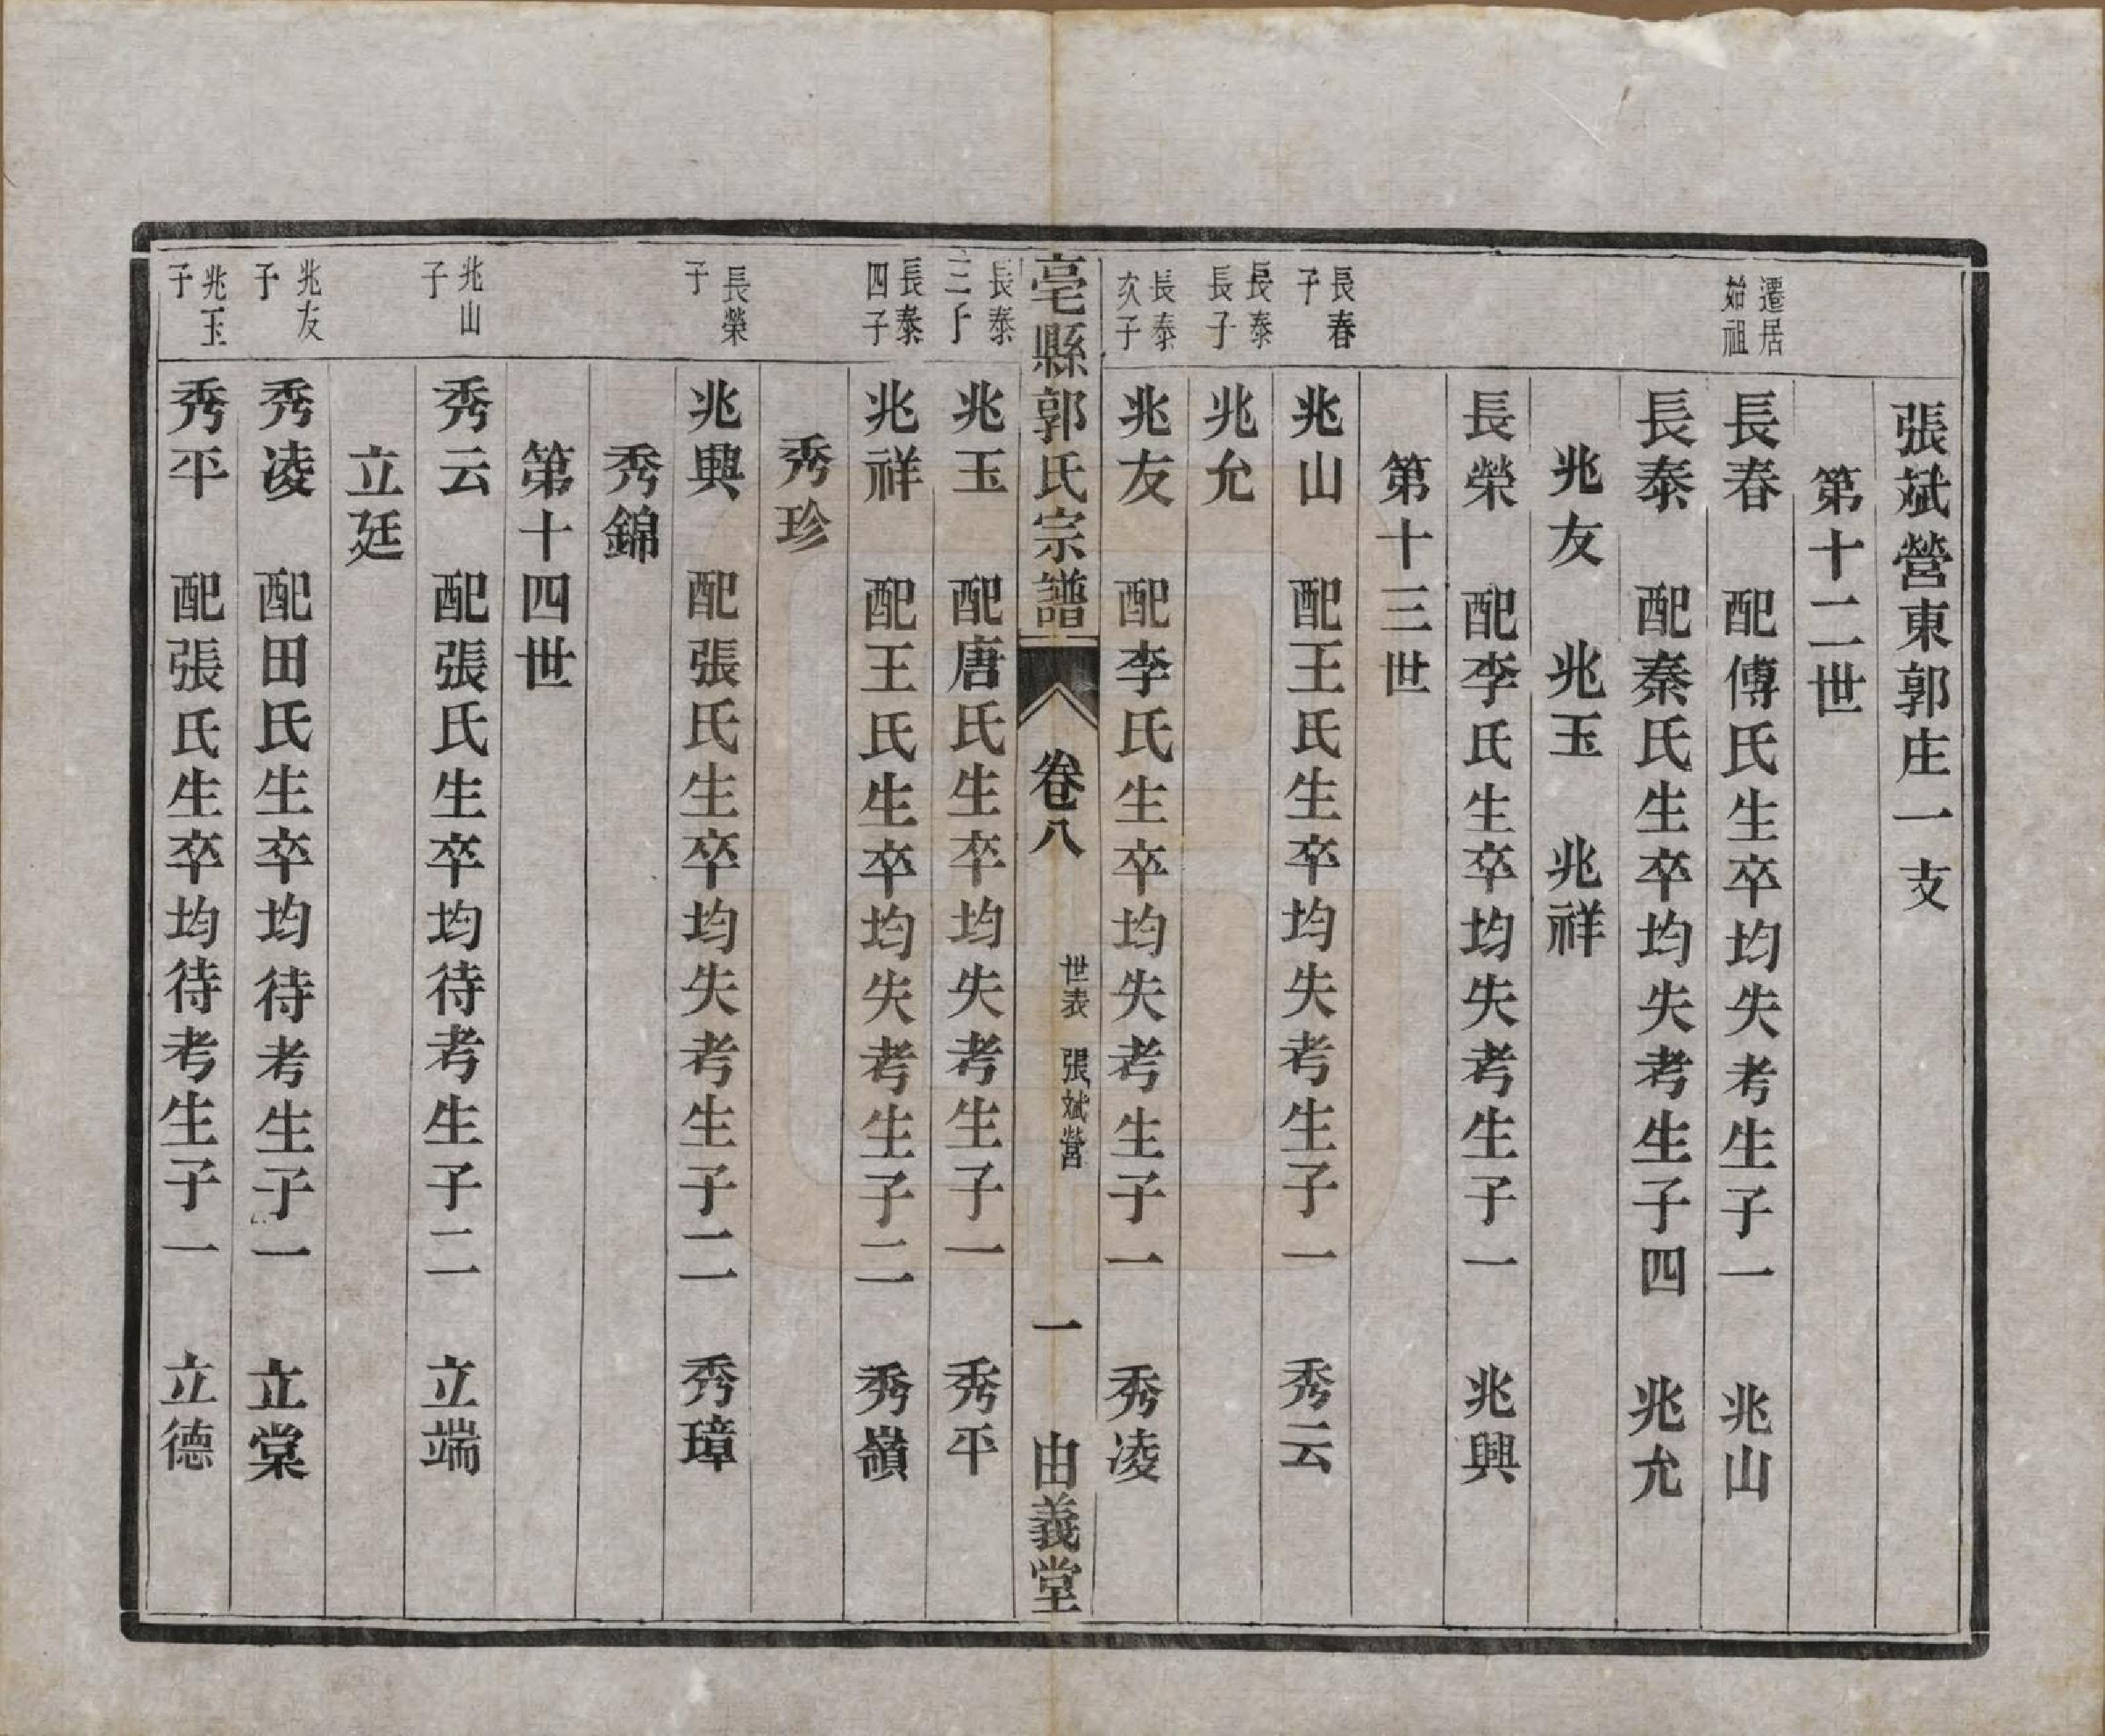 張斌營東郭庄一支
第十二世
遷居始祖
長春　配傅氏生卒均失考生子一　兆山
長泰　配秦氏生卒均失考生子四　兆允
兆友　兆玉　兆祥
長榮　配李氏生卒均失考生子一　兆興
第十三世
長春子
兆山　配王氏生卒均失考生子一　秀云
長泰長子
兆允
長泰次子
兆友　配李氏生卒均失考生子一　秀凌
亳縣郭氏宗譜　卷八　世表　張斌營　一　由義堂
長泰三子
兆玉　配唐氏生卒均失考生子一　秀平
長泰四子
兆祥　配王氏生卒均失考生子二　秀嶺
秀珍
長榮子
兆興　配張氏生卒均失考生子二　秀璋
秀錦
第十四世
兆山子
秀云　配張氏生卒均待考生子二　立端
立廷
兆友子
秀凌　配田氏生卒均待考生子一　立棠
兆玉子
秀平　配張氏生卒均待考生子一　立德